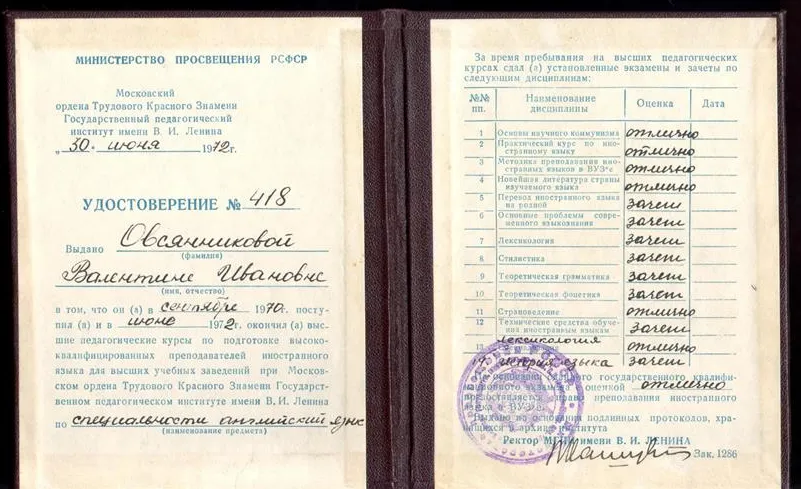 МИНИСТЕРСТВО ПРОСВЕЩЕНИЯ РСФСР
Московский
ордена Трудового Красного Знамени
Государственный педагогический
институт имени В. И. Ленина
„30" июня 1972г.
УДОСТОВЕРЕНИЕ № 418
Выдано Овсянниковой
(фамилия)
Валентине Ивановне
(имя, отчество)
в том, что он (а) в сентябре 1970г. посту-
пил (а) и в июне 1972г. окончил (а) выс-
шие педагогические курсы по подготовке высоко-
квалифицированных преподавателей иностранного
языка для высших учебных заведений при Москов-
ском ордена Трудового Красного Знамени Государст-
венном педагогическом институте имени В.И. Ленина
по специальности английский язык
(наименование предмета)
За время пребывания на высших педагогических
курсах сдал (а) установленные экзамены и зачеты по
следующим дисциплинам:
№№ пп. Наименование дисциплины Оценка Дата
1 Основы научного коммунизма отлично
2 Практический курс по ино-
странному языку отлично
3 Методика преподавания ино-
странных языков в ВУЗ'е отлично
4 Новейшая литература страны
изучаемого языка отлично
5 Перевод иностранного языка
на родной зачет
6 Основные проблемы совре-
менного языкознания зачет
7 Лексикология зачет
8 Стилистика зачет
9 Теоретическая грамматика зачет
10 Теоретическая фонетика зачет
11 Страноведение отлично
12 Технические средства обуче-
ния иностранным языкам зачет
13 Лексикология отлично
история языка зачет
основании сдачи государственного квалифи-
ционного экзамена с оценкой отлично
преподавания иностранного
языка в ВУЗ'е
Выдано на основании подлинных протоколов, хра-
нящихся в архиве института
Ректор МГПИ имени В. И. ЛЕНИНА
Зак. 1286